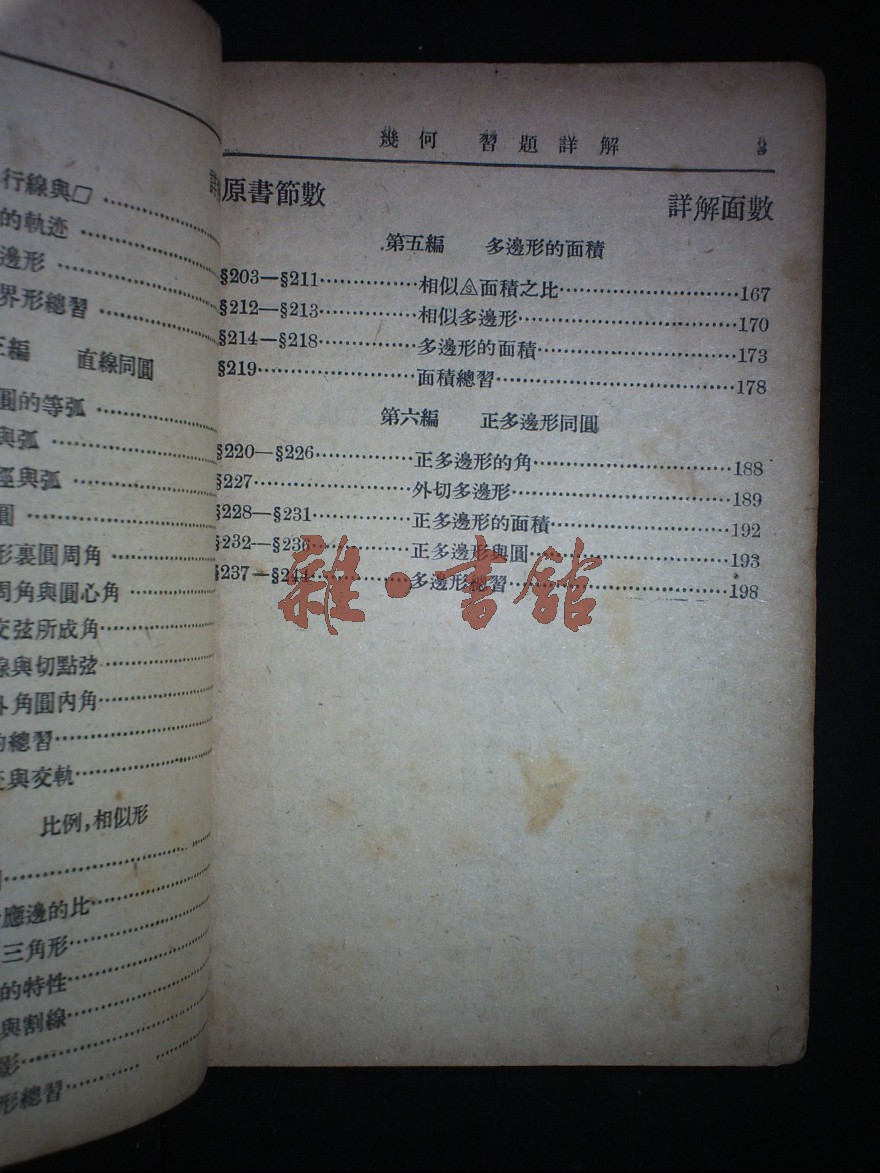 行線與□
的軌迹
邊形
界形總習
編 直線同圓
圓的等弧
與弧
與弧
圓
形裏圓周角
周角與圓心角
交弦所成角
線與切點弦
角圓內角
總習
與交軌
比例,相似形
應邊的比
三角形
的特性
與割線
影
形總習
幾何 習題詳解 3
原書節數 詳解面數
第五編 多邊形的面積
§203—§211 相似△面積之比 167
§212—§213 相似多邊形 170
§214—§218 多邊形的面積 173
§219 面積總習 178
第六編 正多邊形同圓
§220—§226 正多邊形的角 188
§227 外切多邊形 189
§228—§231 正多邊形的面積 192
§232—§236 正多邊形與圓 193
§237—§244 多邊形總習 198
雜·書館